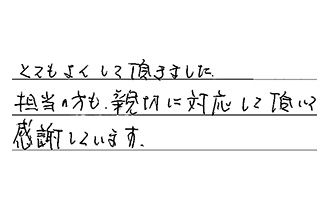 とてもよくして頂きました
担当の方も、親切に対応して頂いて
感謝しています。